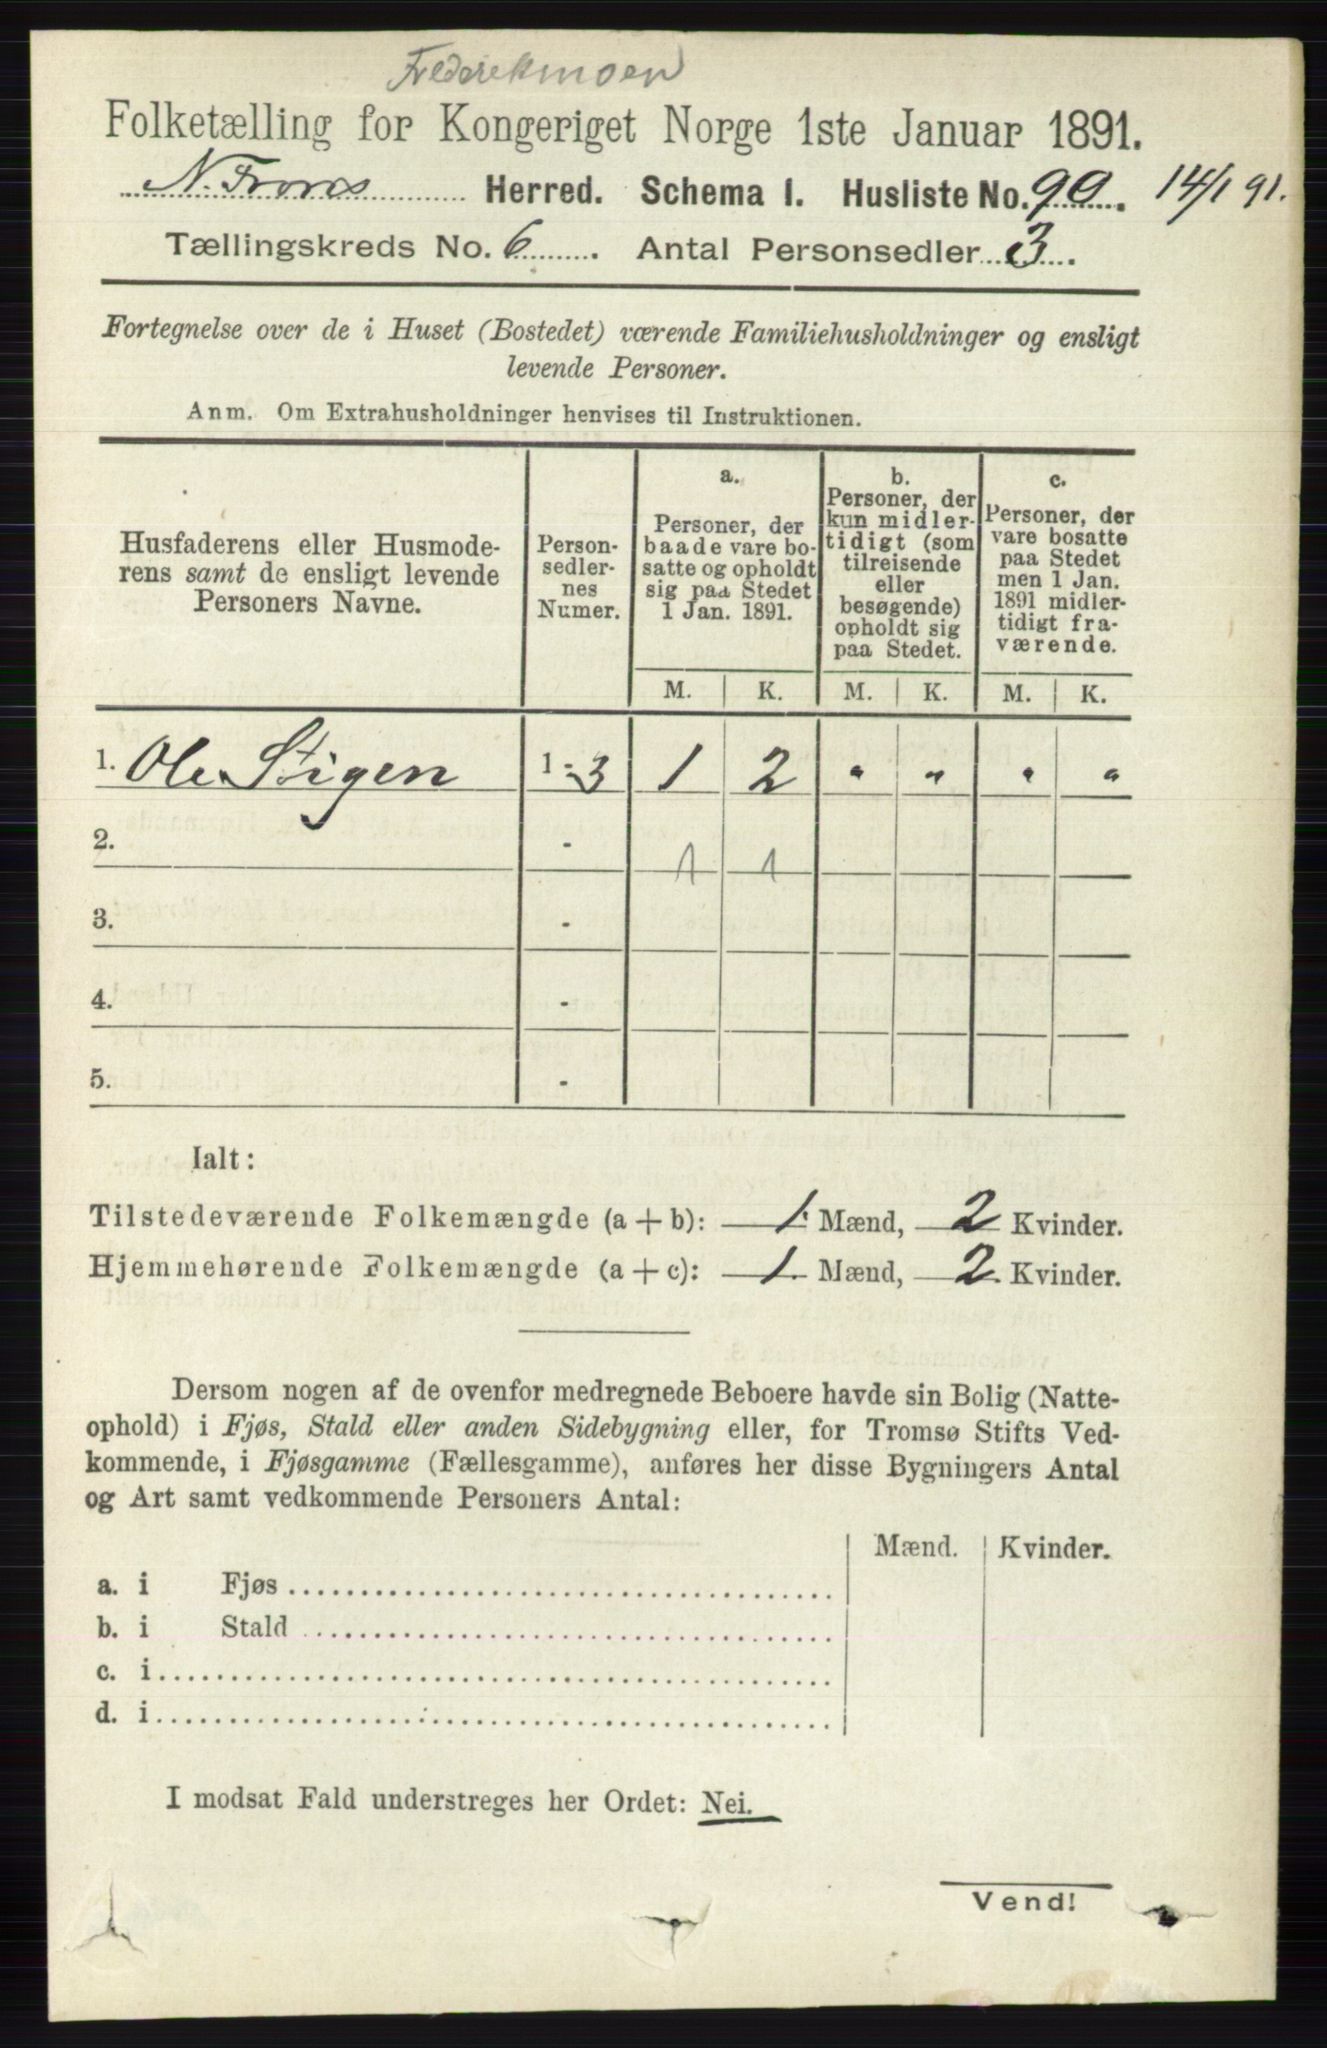 Frederikmoen
Folketælling for Kongeriget Norge 1ste Januar 1891.
N. Frons Herred. Schema I. Husliste No. 90. 14/1 91.
Tællingskreds No. 6. Antal Personsedler 3.
Fortegnelse over de i Huset (Bostedet) værende Familiehusholdninger og ensligt
levende Personer.
Anm. Om Extrahusholdninger henvises til Instruktionen.
Husfaderens eller Husmode-
rens samt de ensligt levende
Personers Navne.
Person-
sedler-
nes
Numer.
a.
Personer, der
baade vare bo-
satte og opholdt
sig paa Stedet
1 Jan. 1891.
b.
Personer, der
kun midler-
tidigt (som
tilreisende
eller
besøgende)
opholdt sig
paa Stedet.
c.
Personer, der
vare bosatte
paa Stedet
men 1 Jan.
1891 midler-
tidigt fra-
værende.
M. K. M. K. M. K.
1. Ole Stigen 1 - 3 1 2 " " " "
2. - 1 1
3. -
4. -
5. -
Ialt:
Tilstedeværende Folkemængde (a + b): 1 Mænd, 2 Kvinder.
Hjemmehørende Folkemængde (a + c): 1 Mænd, 2 Kvinder.
Dersom nogen af de ovenfor medregnede Beboere havde sin Bolig (Natte-
ophold) i Fjøs, Stald eller anden Sidebygning eller, for Tromsø Stifts Ved-
kommende, i Fjøsgamme (Fællesgamme), anføres her disse Bygningers Antal
og Art samt vedkommende Personers Antal:
Mænd. Kvinder.
a. i Fjøs
b. i Stald
c. i
d. i
I modsat Fald understreges her Ordet: Nei.
Vend!